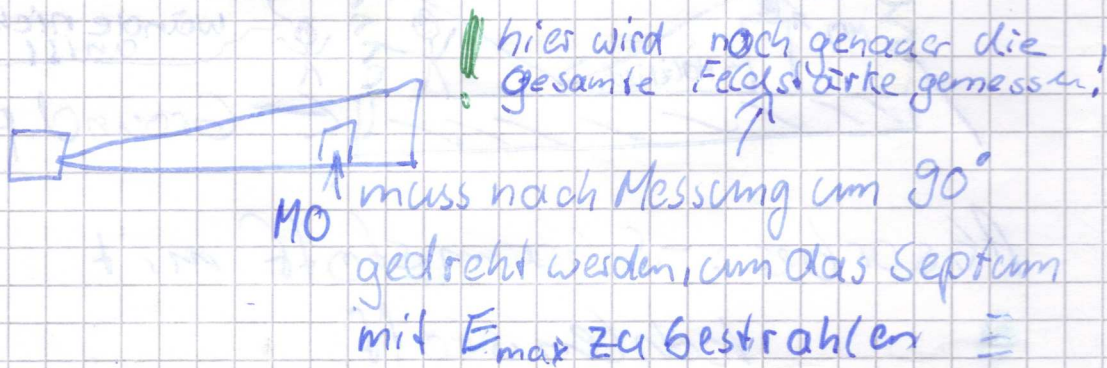 ! hier wird noch genauer die
gesamte Feldstärke gemessen!
MO
muss nach Messung um 90°
gedreht werden, um das Septum
mit Emax zu bestrahlen